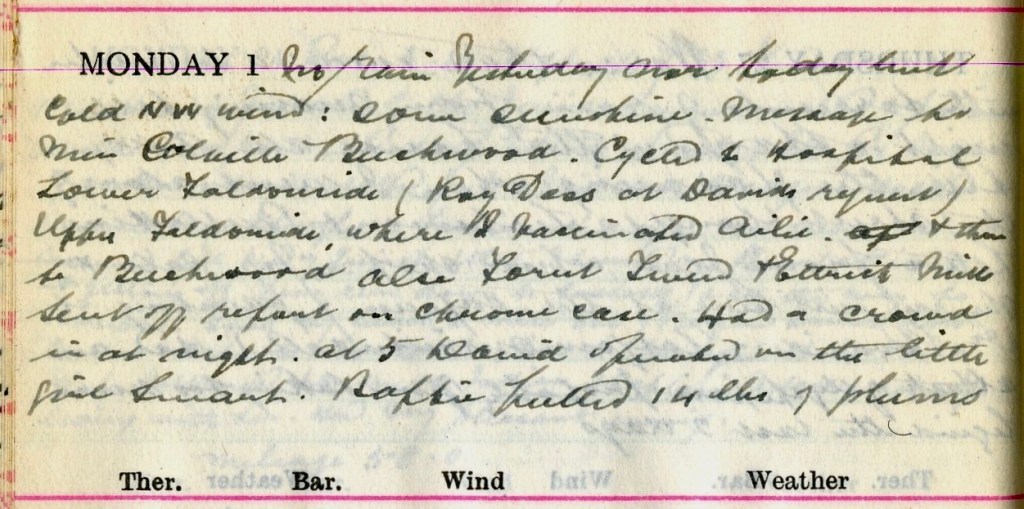 MONDAY 1 No rain Yesterday nor today but
Cold N W wind: some sunshine. Message to
Miss Colville Buckwood. Cycled to Hospital
Lower Faldonside (Ray Dees at Davids request)
Upper Faldonside, where I vaccinated Ailie. & then
to Buckwood also Forest Tweed & Ettrick Mills
Sent off report on chrome case. Had a crowd
in at night. at 5 David operated on the little
girl Smart. pulled 14 lbs of plums
Ther. Bar. Wind Weather